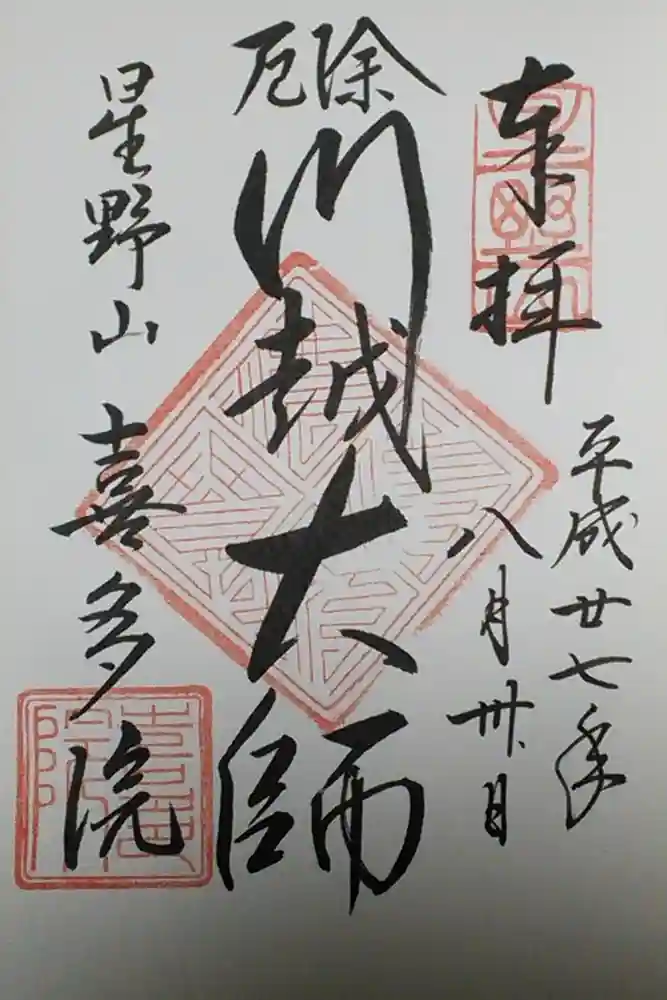 奉拝
平成廿七年
八月卅日
厄除
川越大師
星野山 喜多院
喜多院